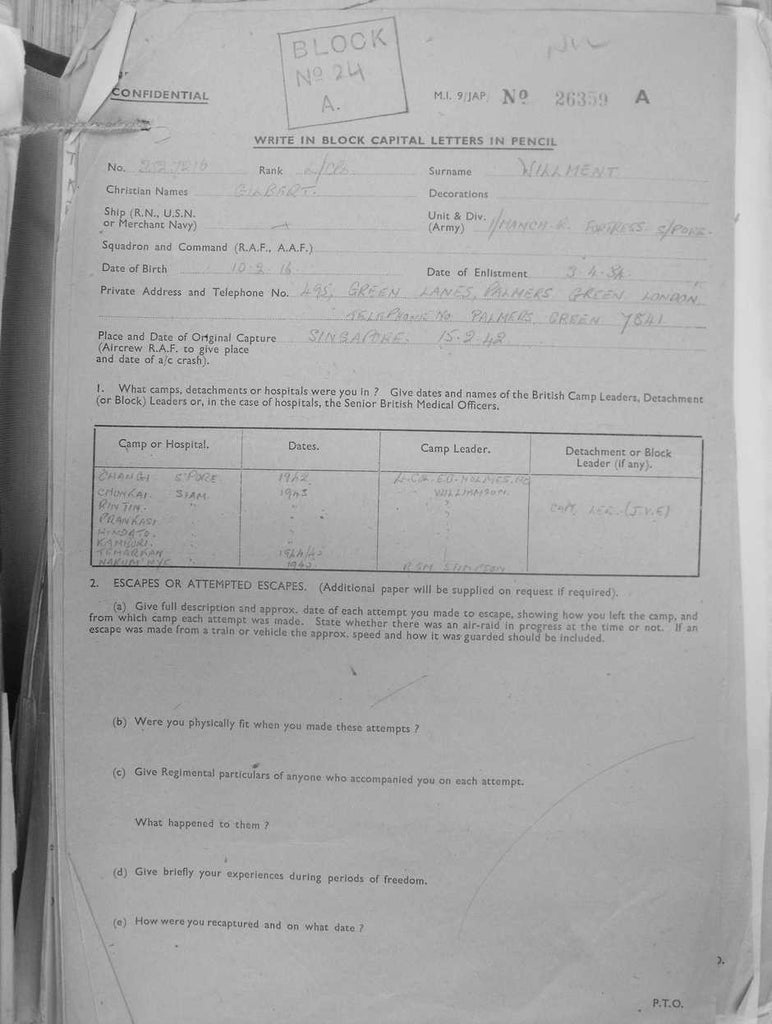 BLOCK
No 24
A.
CONFIDENTIAL
M.I. 9/JAP. No 26359 A
WRITE IN BLOCK CAPITAL LETTERS IN PENCIL
No. Rank L/CPL Surname WILLMENT
Christian Names GILBERT. Decorations
Ship (R.N., U.S.N. or Merchant Navy)
Unit & Div. (Army) 1/MANCH. R. FORTRESS S/PORE.
Squadron and Command (R.A.F., A.A.F.)
Date of Birth 10.2.16 Date of Enlistment 3.4.34
Private Address and Telephone No. 495, GREEN LANES, PALMERS GREEN LONDON
TELEPHONE NO PALMERS GREEN 7841
Place and Date of Original Capture SINGAPORE. 15.2.42
(Aircrew R.A.F. to give place
and date of a/c crash).
1. What camps, detachments or hospitals were you in ? Give dates and names of the British Camp Leaders, Detachment
(or Block) Leaders or, in the case of hospitals, the Senior British Medical Officers.
Camp or Hospital. Dates. Camp Leader. Detachment or Block Leader (if any).
CHANGI S'PORE 1942 HOLMES
CHUNKAI SIAM 1943 WILLIAMSON
RINTIN.
PRANKASI
HINDATO.
KANBURI.
TEMARKAN
RSM
2. ESCAPES OR ATTEMPTED ESCAPES. (Additional paper will be supplied on request if required).
(a) Give full description and approx. date of each attempt you made to escape, showing how you left the camp, and
from which camp each attempt was made. State whether there was an air-raid in progress at the time or not. If an
escape was made from a train or vehicle the approx. speed and how it was guarded should be included.
(b) Were you physically fit when you made these attempts ?
(c) Give Regimental particulars of anyone who accompanied you on each attempt.
What happened to them ?
(d) Give briefly your experiences during periods of freedom.
(e) How were you recaptured and on what date ?
P.T.O.